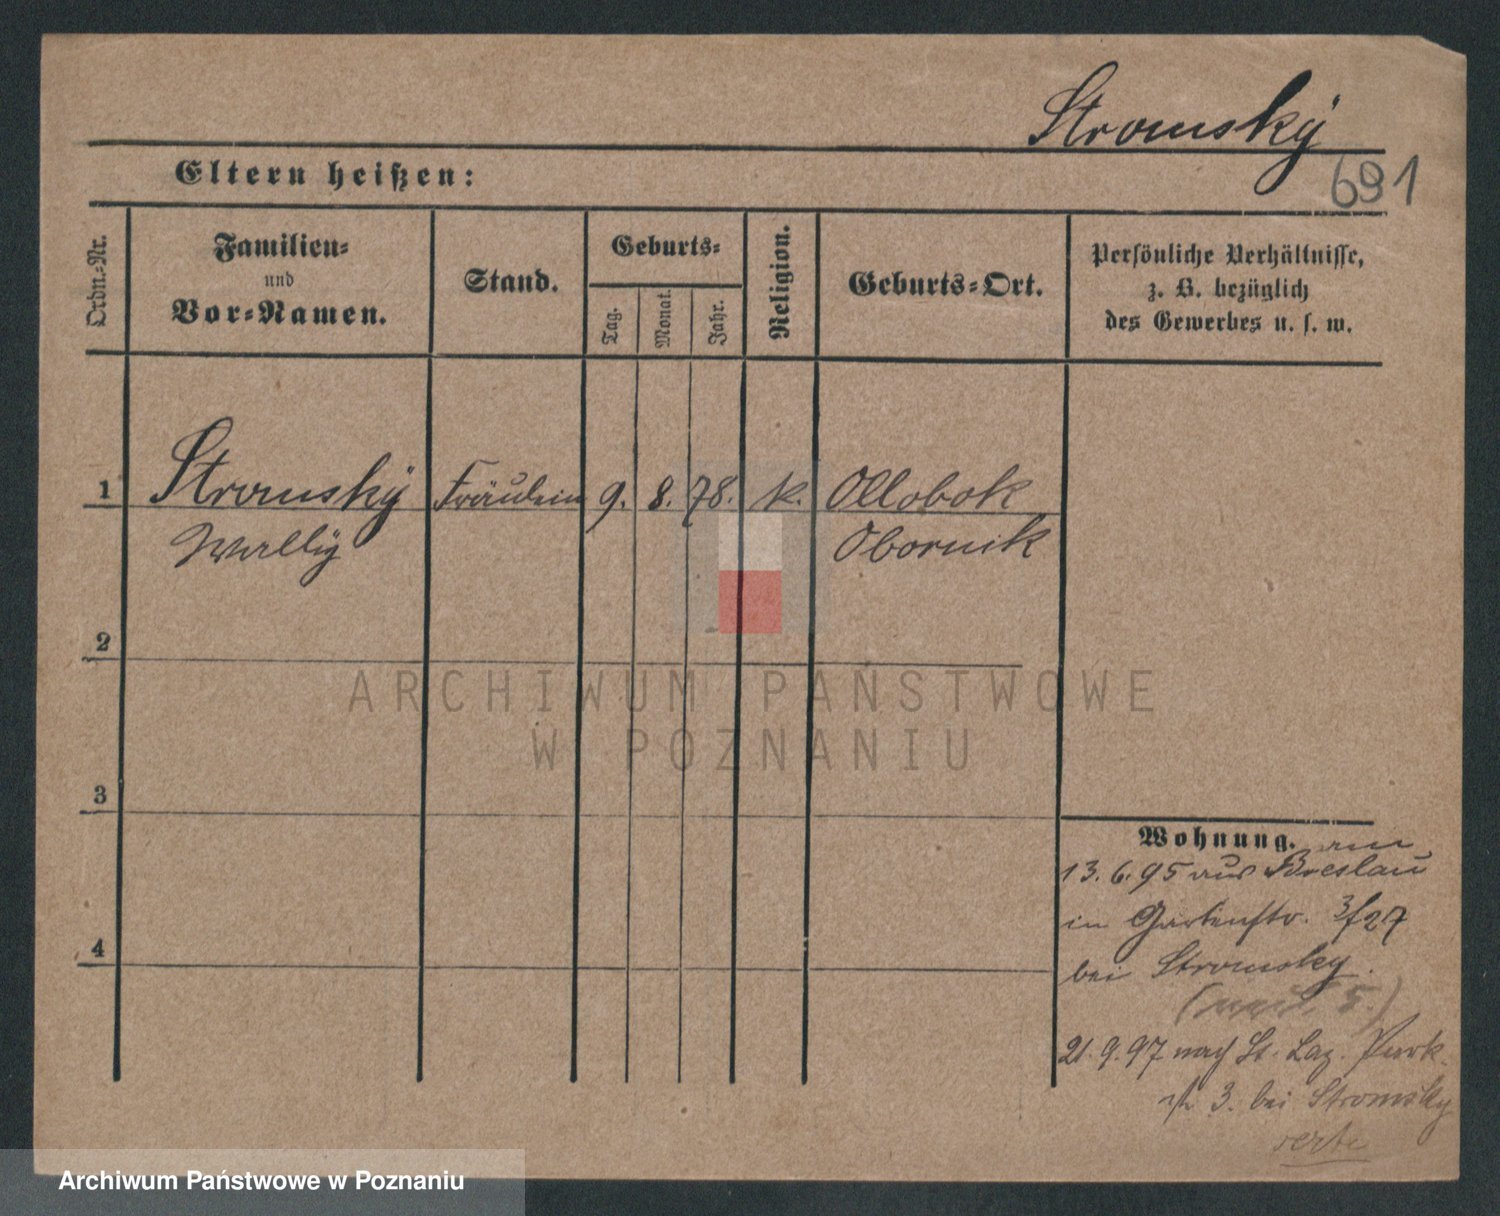 Stromsky
691
Eltern heißen:
Ordn.-Nr.
Familien-
und
Vor-Namen.
Stand.
Geburts-
Tag.
Monat.
Jahr.
Religion.
Geburts-Ort.
Persönliche Verhältnisse,
z. B. bezüglich
des Gewerbes u. s. w.
1 Stromsky Fräulein 9. 8. 78. k. Ollobok
Wally Obornik
2
ARCHIWUM PAŃSTWOWE
W POZNANIU
3
Wohnung. am
13. 6. 95 aus Breslau
in Gartenstr. 3/27
4
bei Stromsky.
21. 9. 97 nach St. Laz. Park
3. bei Stromsky
verte
Archiwum Państwowe w Poznaniu